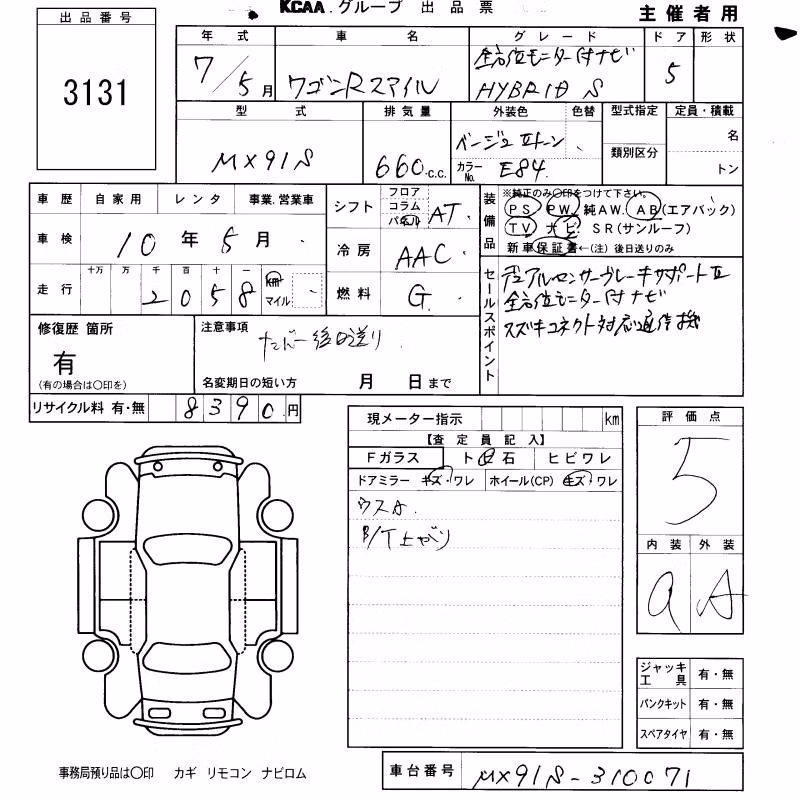 KCAA.グループ 出品票
主催者用
出品番号
3131
年式 車名 グレード ドア 形状
7/5月 ワゴンRスマイル 全方位モニター付ナビ HYBRID S 5
型式 排気量 外装色 色替 型式指定 定員・積載
MX91S 660 c.c. ベージュⅡトーン 名
カラーNo. E84 類別区分 トン
車歴 自家用 レンタ 事業.営業車
シフト フロア コラム パネル AT
装備品 ※純正のみ〇印をつけて下さい。
PS PW 純AW. AB(エアバック)
TV ナビ SR(サンルーフ)
新車保証書←(注)後日送りのみ
車検 10年5月
冷房 AAC
走行 十万 万 千 百 十 一
2058 km マイル
燃料 G
セールスポイント
デュアルセンサーブレーキサポートⅡ
全方位モニター付ナビ
スズキコネクト対応通信機
修復歴 箇所 有
(有の場合は〇印を)
注意事項
ナンバー後日送り
名変期日の短い方 月 日まで
リサイクル料 有・無 8390円
現メーター指示 km
【査定員記入】
Fガラス トビ石 ヒビワレ
ドアミラー キズ・ワレ ホイール(CP) キズ・ワレ
ウスA
B/T上がり
評価点
5
内装 外装
a A
ジャッキ工具 有・無
パンクキット 有・無
スペアタイヤ 有・無
事務局預り品は〇印 カギ リモコン ナビロム
車台番号 MX91S-310071